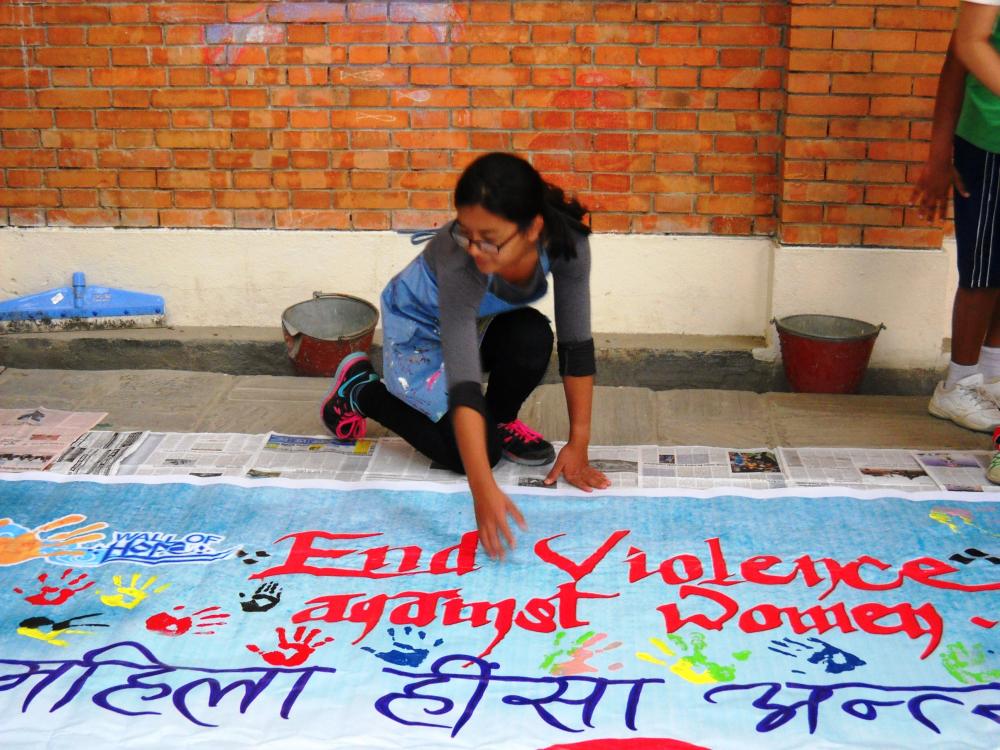 WALL OF
Hope
End Violence
against women.
महिला हींसा अन्त